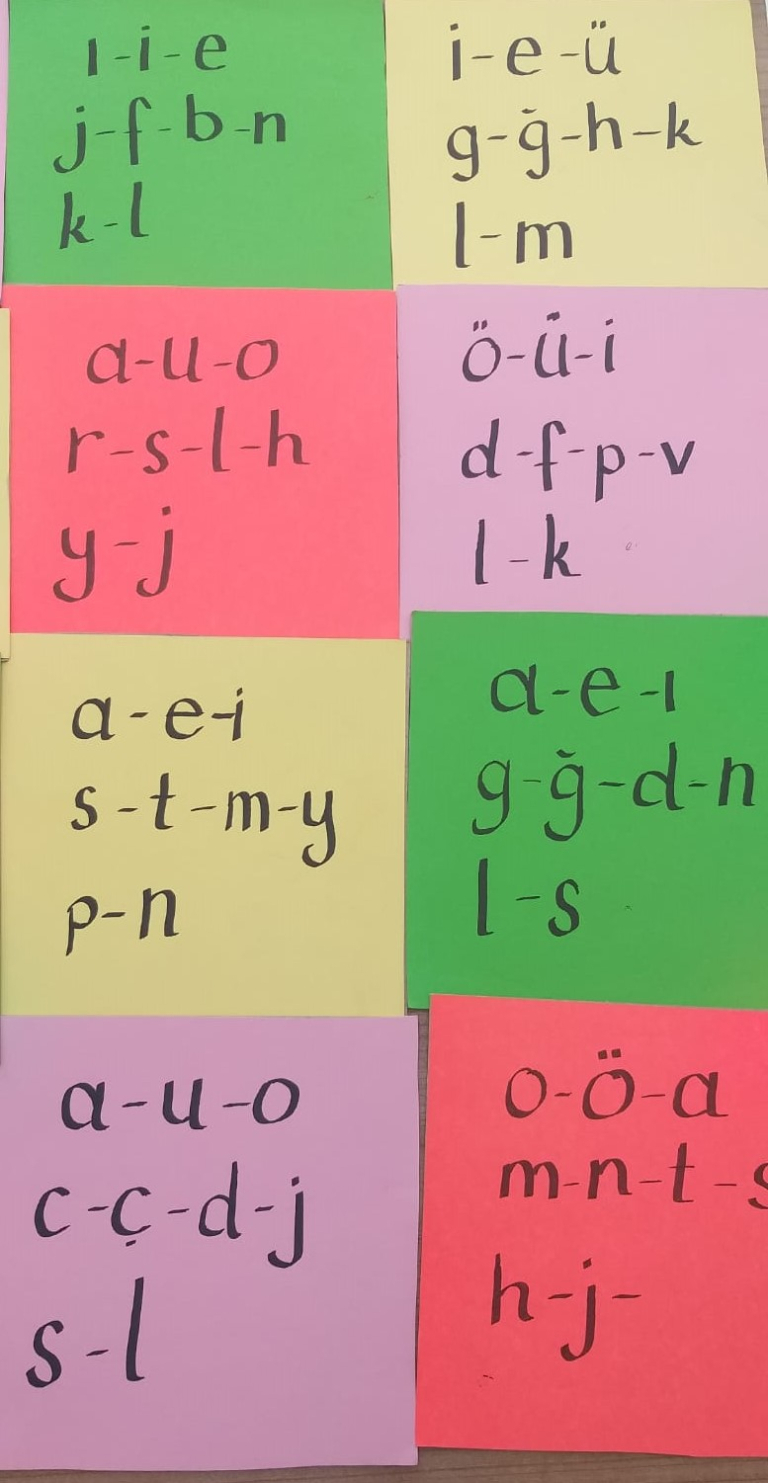 ı-i-e
j-f-b-n
k-l
i-e-ü
g-ğ-h-k
l-m
a-u-o
r-s-l-h
y-j
ö-ü-i
d-f-p-v
l-k
a-e-i
s-t-m-y
p-n
a-e-ı
g-ğ-d-n
l-s
a-u-o
c-ç-d-j
s-l
o-ö-a
m-n-t-s
h-j-